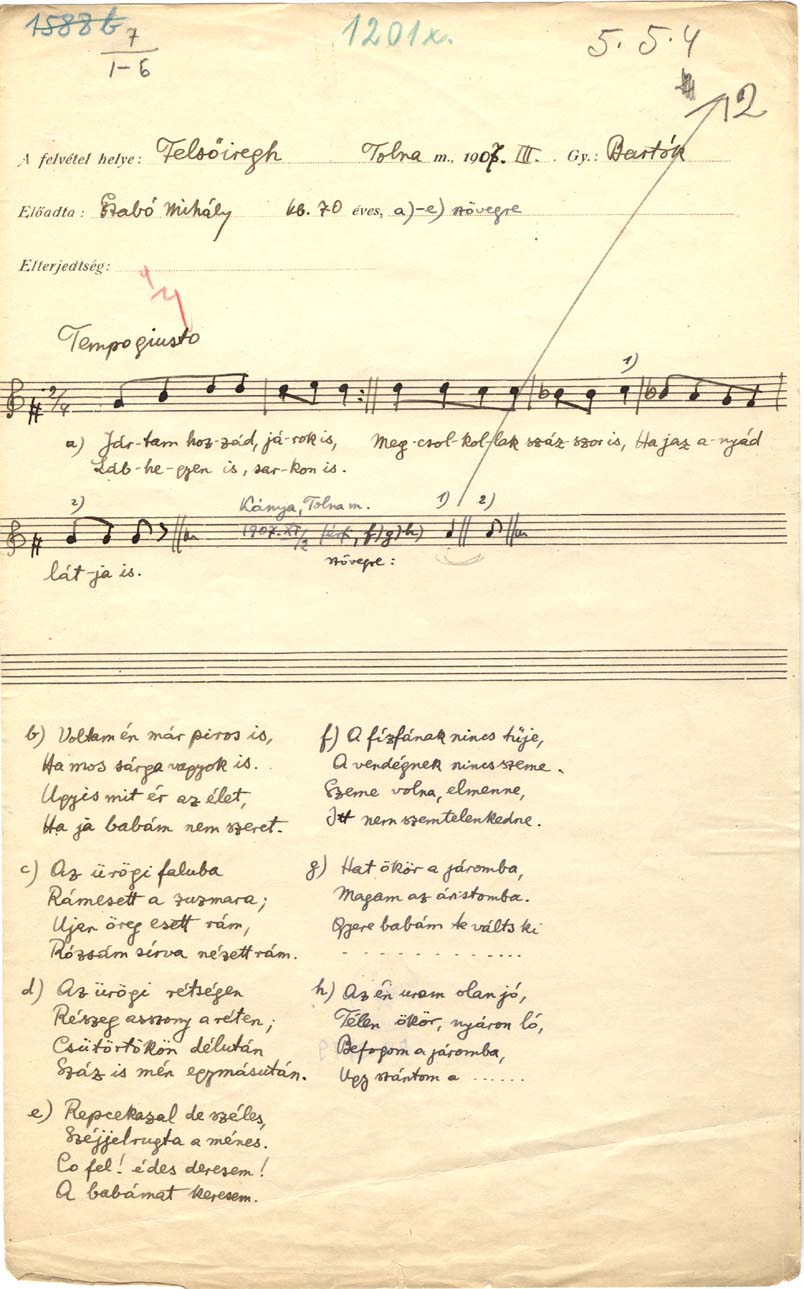 1588 b
7
1-6
1201x.
5. 5. 4
12
A felvétel helye: Felsőiregh Tolna m., 1907. III. Gy.: Bartók
Előadta: Szabó Mihály kb. 70 éves, a)-e) szövegre
Elterjedtség:
Tempo giusto
2/4
1)
a) Jár-tam hoz-zád, já-rok is, Meg-csol-kol-lak száz-szor is, Ha jaz a-nyád
Láb-he-gyen is, sar-kon is.
2) Kánya, Tolna m. 1) 2)
1907. XI/2 f) g) h)
szövegre:
lát-ja is.
b) Voltam én már piros is,
Ha mos sárga vagyok is.
Ugyis mit ér az élet,
Ha ja babám nem szeret.
c) Az ürögi faluba
Rámesett a zuzmara;
Ujan öreg esett rám,
Rózsám sírva nézett rám.
d) Az ürögi rétségen
Részeg asszony a réten;
Csütörtökön délután
Száz is mén egymásután.
e) Repcekazal de széles,
Széjjelrugta a ménes.
Co fel! édes deresem!
A babámat keresem.
f) A fízfának nincs tüje,
A vendégnek nincs szeme.
Szeme volna, elmenne,
Itt nem szemtelenkedne.
g) Hat ökör a járomba,
Magam az áristomba.
Gyere babám te válts ki
- - - - - - - - - ....
h) Az én uram olan jó,
Télen ökör, nyáron ló,
Befogom a járomba,
Ugy szántom a ......